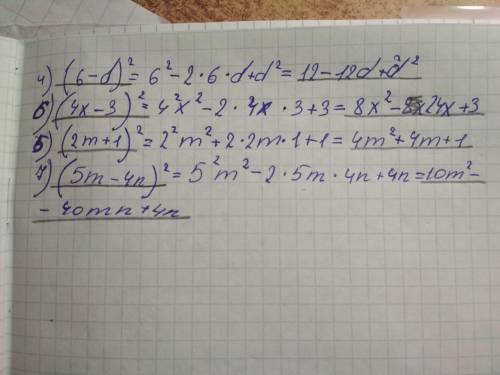 4) (6-d)² = 6² - 2·6·d+d² = 12-12d+d²
5) (4x-3)² = 4²x² - 2·4x·3+3 = 8x² - 24x+3
6) (2m+1)² = 2²m²+2·2m·1+1 = 4m²+4m+1
7) (5m-4n)² = 5²m² - 2·5m·4n+4n = 10m² -
- 40mn+4n